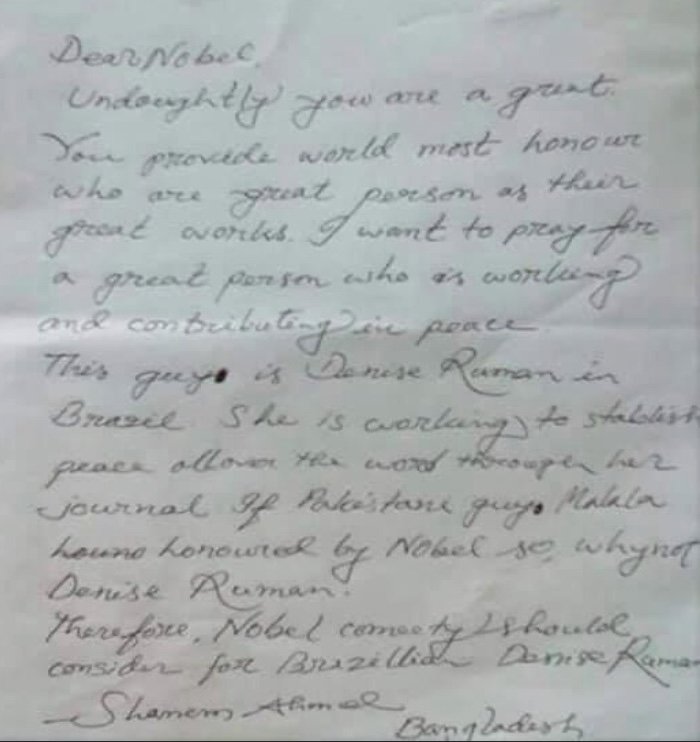 Dear Nobel,
Undoughtly you are a great.
You provide world most honour
who are great person as their
great works. I want to pray for
a great person who is working
and contributing in peace
This guy is Denise Ruman in
Brazil. She is working to stablish
peace allover the word through her
journal If Pakistani guy Malala
honoured by Nobel so, why not
Denise Ruman.
Therefore, Nobel should
consider for Brazillian Denise Ruman
Shamem Ahmed
Bangladesh